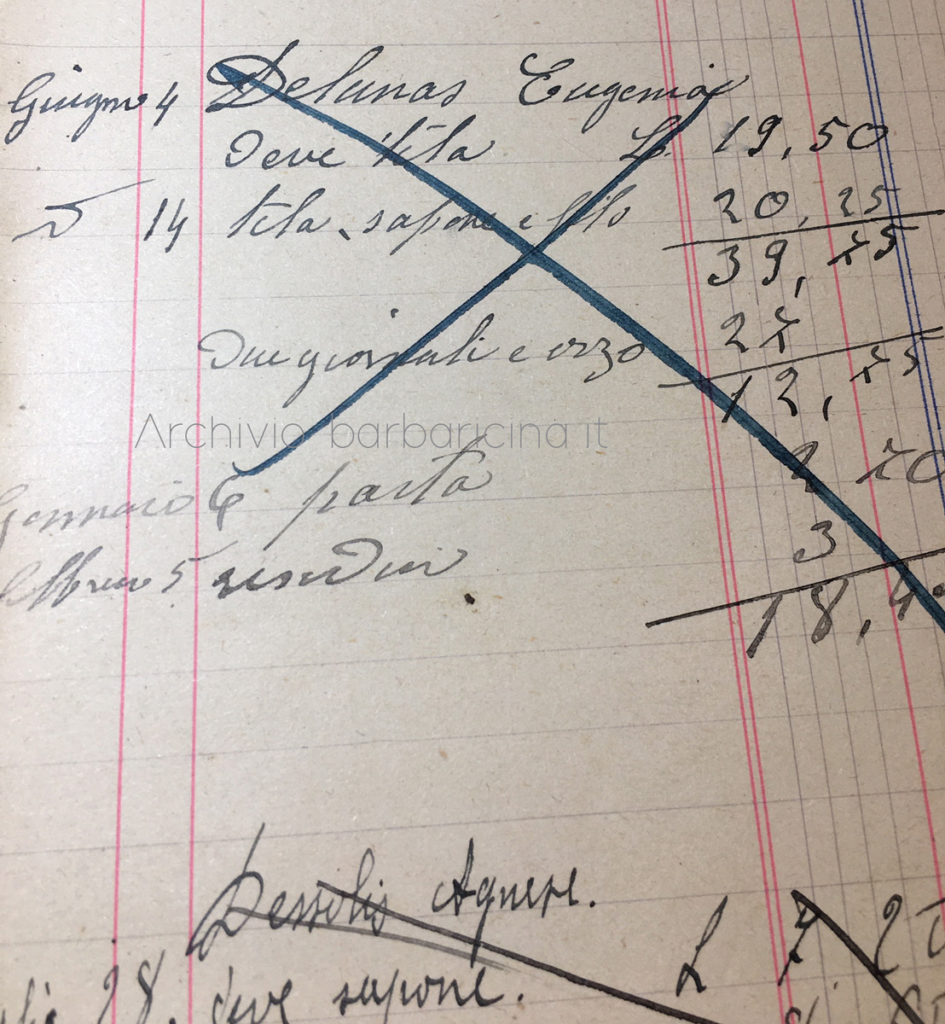 Giugno 4 Delunas Eugenia
Deve tela L. 19,50
D 14 tela, sapone e filo 20,25
39,75
Due giornali e orzo 27
12,75
Archivio barbaricina it
Gennaio 6 pasta 2 70
Febbraio 5 3
18,4
Dessolis Agnese.
L 7 25
28. deve sapone.